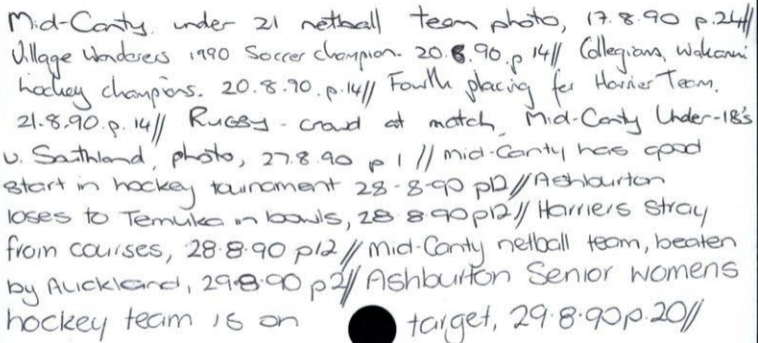 Mid-Canty under 21 netball team photo, 17.8.90 p.24//
Village Wanderers 1990 Soccer champion. 20.8.90.p 14// Collegians, Wakanui
hockey champions. 20.8.90.p.14// Fourth placing for Harrier Team.
21.8.90.p.14// Rugby - crowd at match, Mid-Canty Under-18's
v. Southland, photo, 27.8.90 p 1 // Mid-Canty has good
start in hockey tournament 28-8-90 p12//Ashburton
loses to Temuka in bowls, 28 8 90 p12// Harriers stray
from courses, 28.8.90 p12// Mid-Canty netball team, beaten
by Auckland, 29.8.90 p2// Ashburton Senior womens
hockey team is on target, 29.8.90p.20//